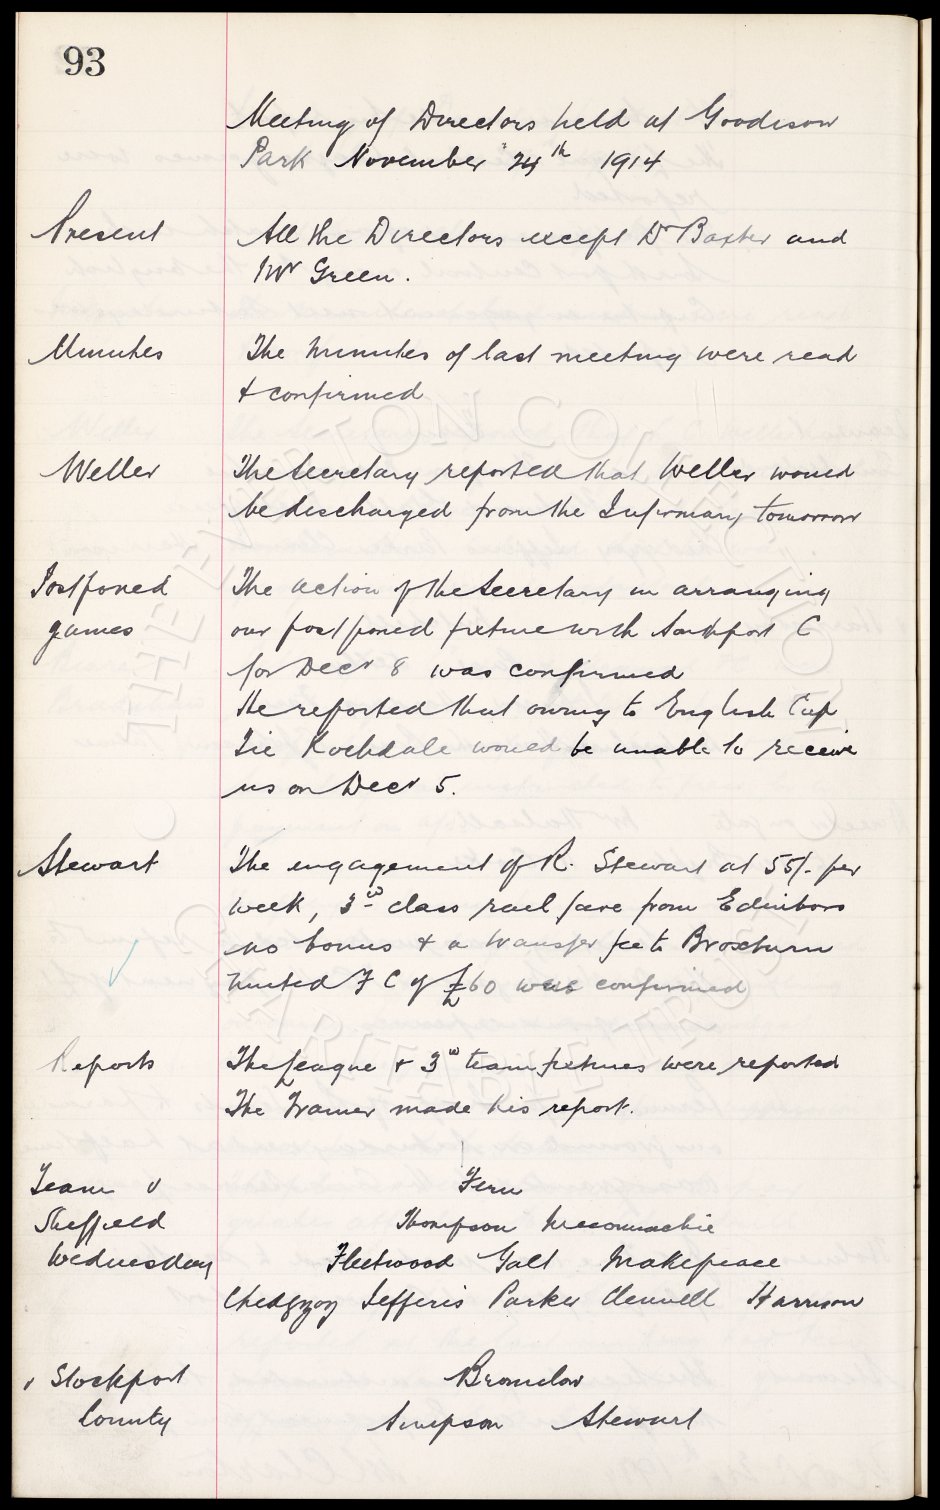 93
Meeting of Directors held at Goodison
Park November 24th 1914
Present All the Directors except Dr Baxter and
Mr Green.
Minutes The minutes of last meeting were read
& confirmed
Weller The Secretary reported that Weller would
be discharged from the Infirmary tomorrow
Postponed The action of the Secretary in arranging
games our postponed fixture with Southport C
for Decr 8 was confirmed
He reported that owing to English Cup
Tie Rochdale would be unable to receive
us on Decr 5.
Stewart The engagement of R. Stewart at 55/- per
week, 3rd class rail fare from Edinboro
no bonus & a transfer fee to Broxburn
United F C of £60 was confirmed
Reports The League & 3rd team fixtures were reported
The Trainer made his report.
Team v Fern
Sheffield Thompson Maconnachie
Wednesday Fleetwood Galt Makepeace
Chedgzoy Jefferis Parker Clennell Harrison
v Stockport Bromilow
County Simpson Stewart